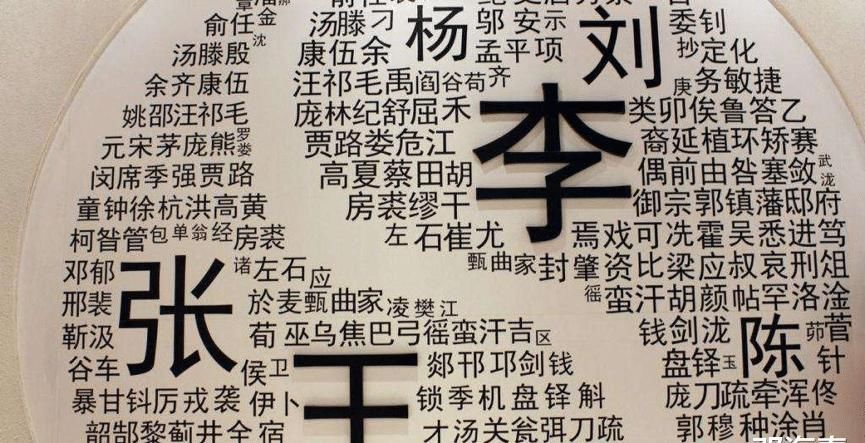 俞任金 汤滕刁 杨 邬安示 刘 委钊
沈
汤滕殷 康伍余 孟平项 抄定化
余齐康伍 汪祁毛禹阎谷苟齐 庚务敏捷
姚邵汪祁毛 庞林纪舒屈禾 李 类卯俟鲁答乙
元宋茅庞熊罗娄 贾路娄危江 裔延植环矫赛
闵席季强贾路 高夏蔡田胡 偶前由昝塞敛武泷
童钟徐杭洪高黄 房裘缪干 御宗郭镇藩邸府
柯昝管包单翁经房裘 左石崔尤 焉戏可冼霍吴悉进笃
邓郁 张 诸左石应 甄曲家封肇资比梁应叔哀刑俎
邢裴 於麦甄曲家凌樊江 徭蛮汗胡颜帖罕洛淦
靳汲 荀巫乌焦巴弓徭蛮汗吉区 钱剑泷 陈 茆菅
谷车 侯卫 王 郯邗邛剑钱 盘铎玉 针
暴甘钭厉戎 袭伊卜 锁季机盘铎斛 庞刀疏牵浑佟
韶郜黎蓟井全宿 才汤关瓮弭刀疏 郭穆种涂肖